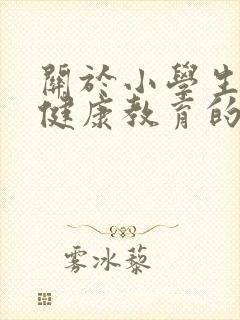 關於小學生
健康教育的
雾冰藜